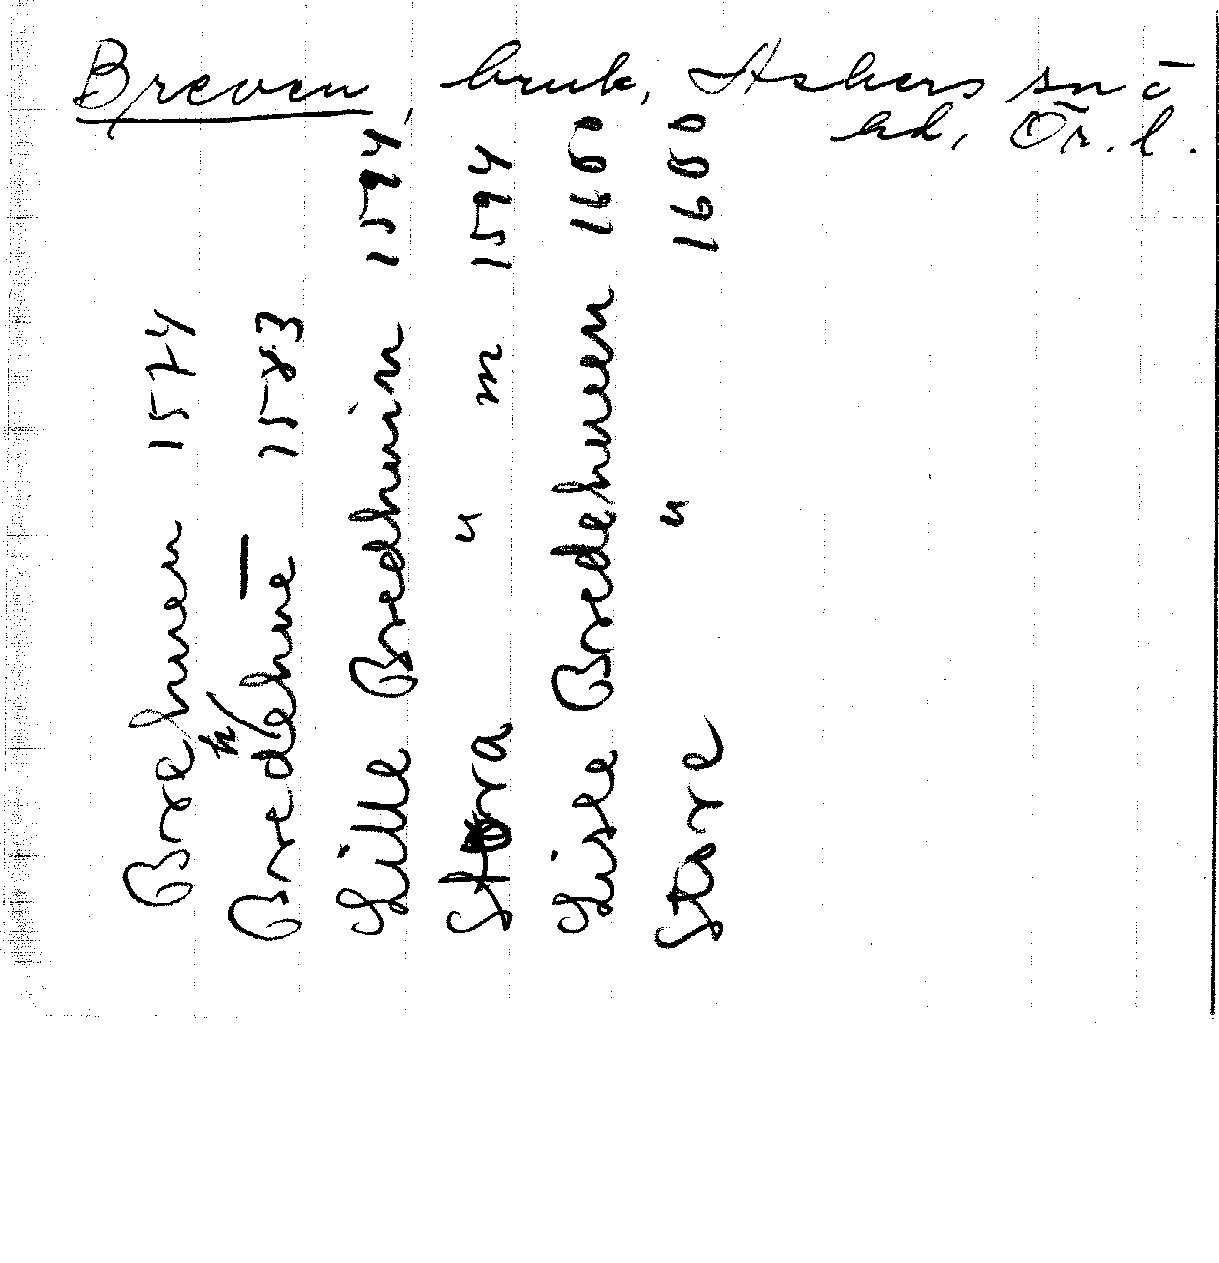 Breven, bruk, Askers sn o
hd, Ör. l.
Brehuen 1574
Bredehue 1583
Lille Bredhuin 1594
Stora " m 1594
Lisle Bredehuuen 1600
Store " 1600